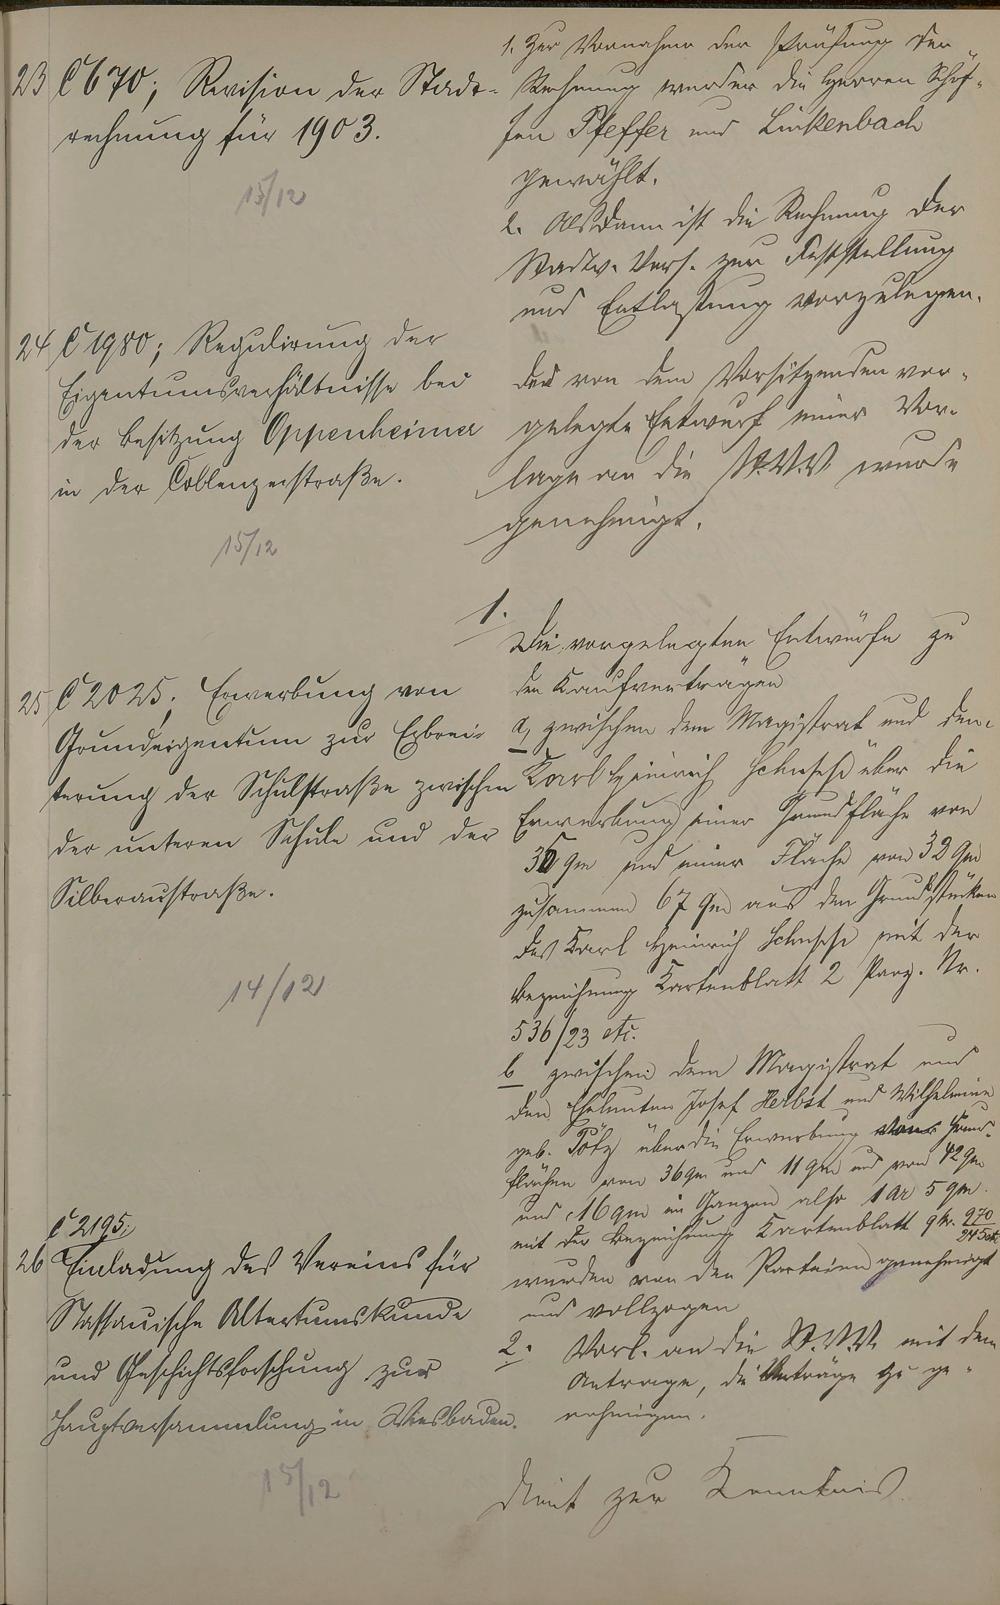 23 C 670; Revision der Stadt-
rechnung für 1903.
15/12
1. Zur Vornahme der Prüfung der
Rechnung wurden die Herren Schöf-
fen Pfeffer und Lückenbach
gewählt.
2. Alsdann ist die Rechnung der
Stadtv. Vers. zur Feststellung
und Entlastung vorzulegen.
24 C 1980; Regulirung der
Eigentumsverhältnisse bei
der Besitzung Oppenheimer
in der Coblenzerstraße.
15/12
Der von dem Vorsitzenden vor-
gelegte Entwurf einer Vor-
lage an die St.V.V. wurde
genehmigt.
25 C 2025; Erwerbung von
Grundeigentum zur Erbrei-
terung der Schulstraße zwischen
der unteren Schule und der
Silberaustraße.
14/12
1.
Die vorgelegten Entwürfe zu
den Kaufverträgen
a, zwischen dem Magistrat und dem
Karl Heinrich über die
Erwerbung einer Grundfläche von
35 qm und einer Fläche von 32 qm
zusammen 67 qm aus den Grundstücken
des Karl Heinrich mit der
Bezeichnung Kartenblatt 2 Parz. Nr.
536/23 etc.
b zwischen dem Magistrat und
den Eheleuten Josef Herbst und Wilhelmine
geb. Götz über die Erwerbung von Grund-
flächen von 36 qm und 11 qm und von 42 qm
und 16 qm im Ganzen also 1 ar 5 qm
mit der Bezeichnung Kartenblatt 9 Nr. 970/245 etc.
wurden von den Parteien genehmigt
und vollzogen
2. Vorl. an die St.V.V. mit dem
Antrage, die Verträge zu ge-
nehmigen.
C 2195;
26 Einladung des Vereins für
Nassauische Altertumskunde
und Geschichtsforschung zur
Hauptversammlung in Wiesbaden.
15/12
dient zur Kenntnis